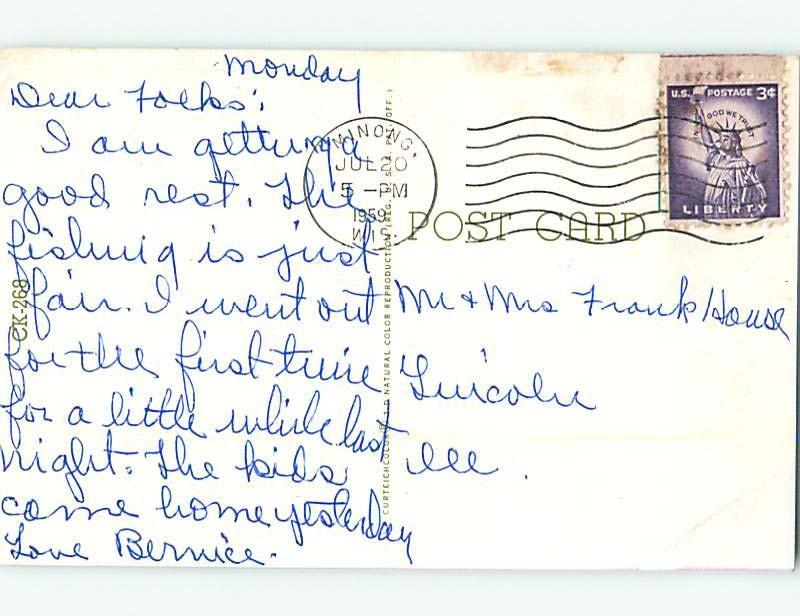 Monday
Dear Folks;
I am getting a
good rest. The
fishing is just
fair. I went out
for the first time
for a little while last
night. The kids
come home yesterday
Love Bernice.
MINONG,
JUL 20
5 -PM
1959
WIS.
U.S. POSTAGE 3¢
IN GOD WE TRUST
LIBERTY
POST CARD
Mr & Mrs Frank House
Lincoln
Ill.
CK-268
CURTEICHCOLOR 3-D NATURAL COLOR REPRODUCTION (REG. U.S.A. PAT. OFF.)